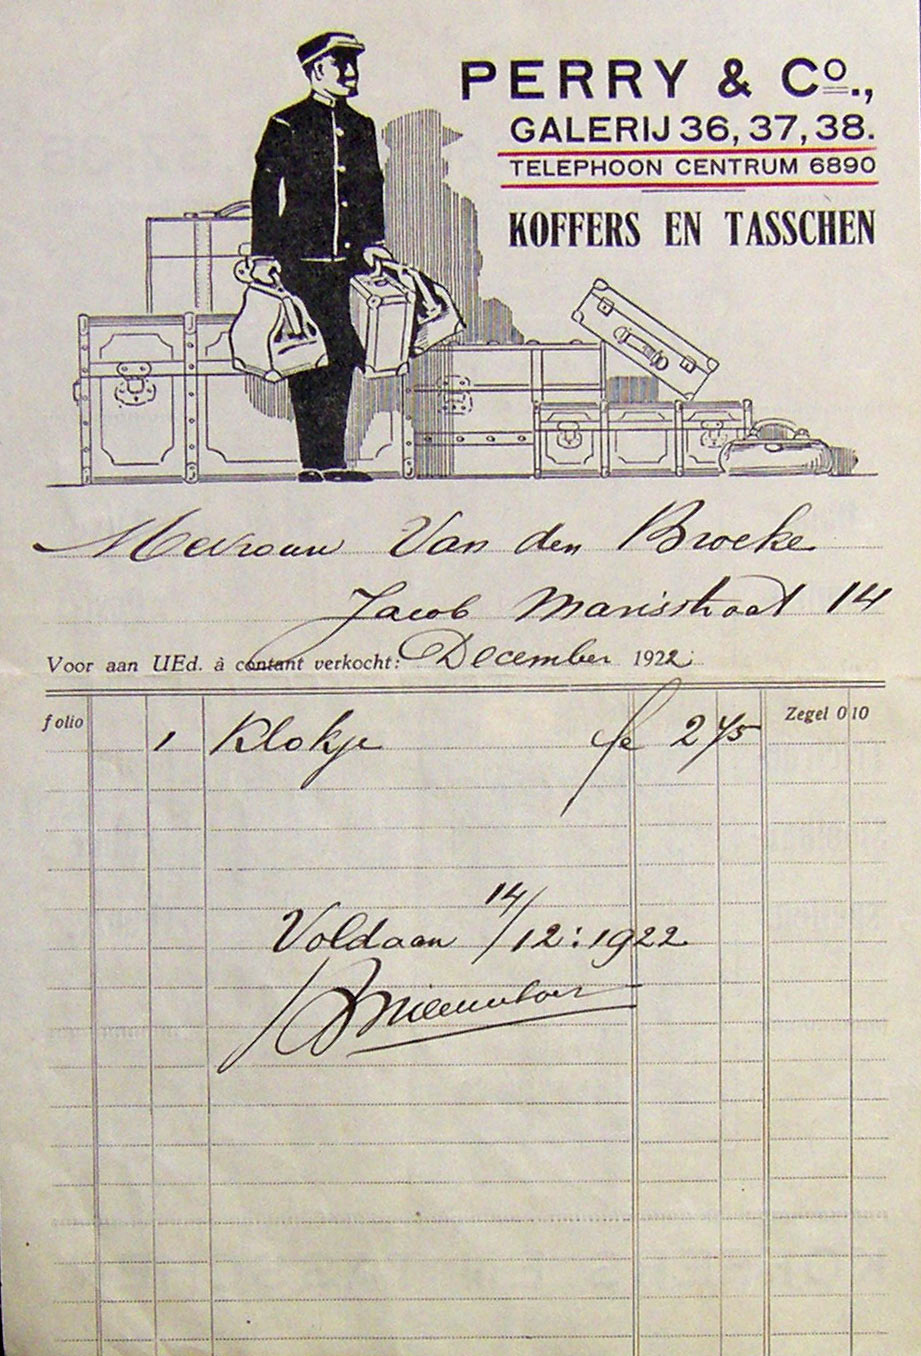 PERRY & Co.,
GALERIJ 36, 37, 38.
TELEPHOON CENTRUM 6890
KOFFERS EN TASSCHEN
Mevrouw Van den Broeke
Jacob Marisstraat 14
Voor aan UEd. à contant verkocht: December 1922
folio Zegel 0 10
1 Klokje fe 2 45
Voldaan 14/12: 1922